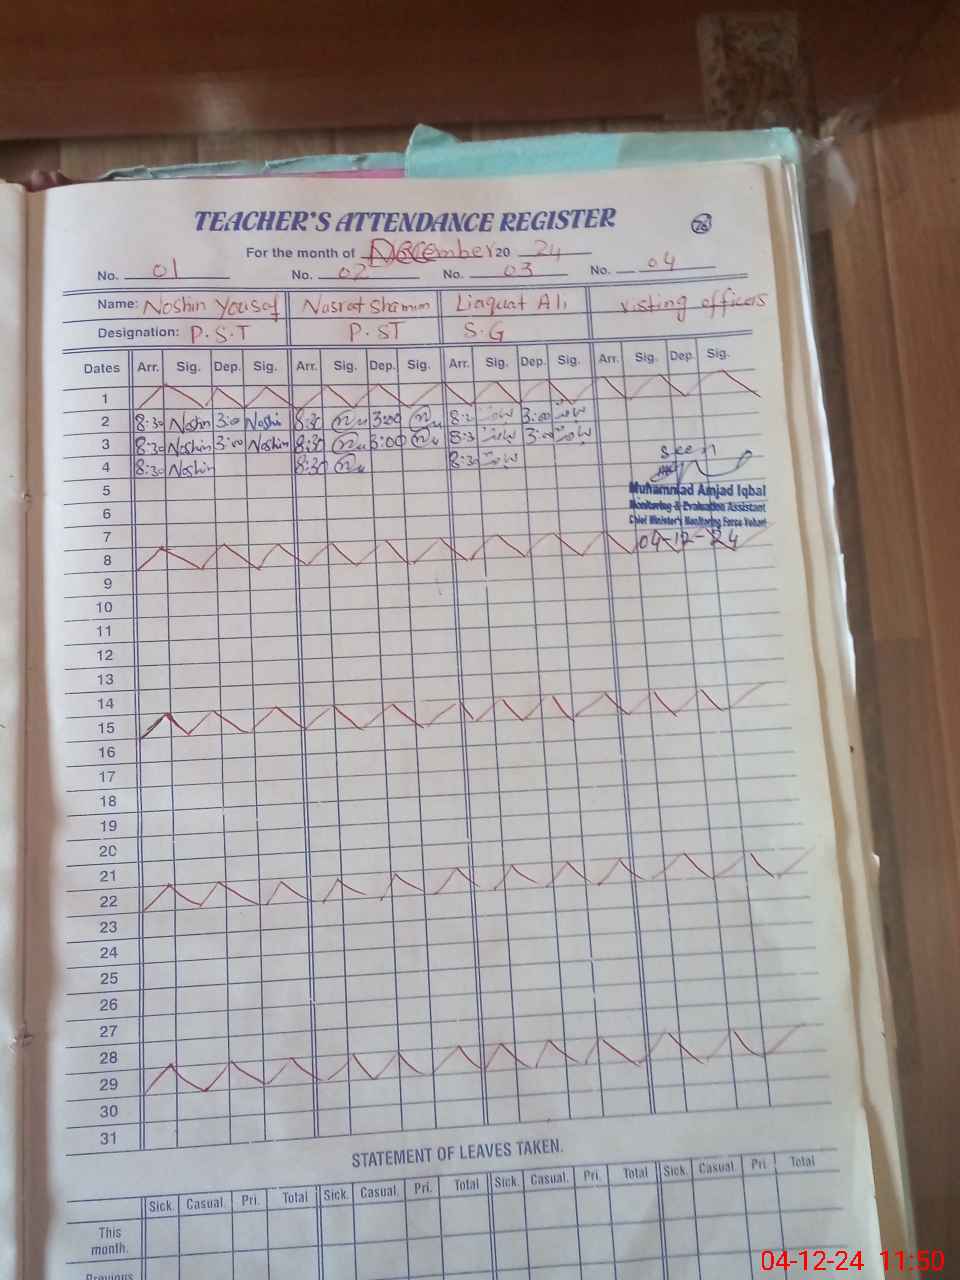 TEACHER'S ATTENDANCE REGISTER 76
For the month of December 20 24
No. 01 No. 02 No. 03 No. 04
Name: Noshin Yousaf Nasrat Shamim Liaquat Ali visting officers
Designation: P.S.T P.ST S.G
Dates Arr. Sig. Dep. Sig. Arr. Sig. Dep. Sig. Arr. Sig. Dep. Sig. Arr. Sig. Dep. Sig.
1
2 8:30 Noshin 3:00 Noshin 8:30 3:00 3:00
3 8:30 Noshin 3:00 Noshin 8:30 3:00 8:30 3:00
4 8:30 Noshin 8:30 8:30
Seen
5
Muhammad Amjad Iqbal
6
Monitoring & Evaluation Assistant
Chief Minister's Monitoring Force Vehari
7
04-12-24
8
9
10
11
12
13
14
15
16
17
18
19
20
21
22
23
24
25
26
27
28
29
30
31
STATEMENT OF LEAVES TAKEN.
Sick. Casual. Pri. Total Sick. Casual. Pri. Total Sick. Casual. Pri. Total Sick. Casual. Pri. Total
This
month.
Previous
04-12-24 11:50